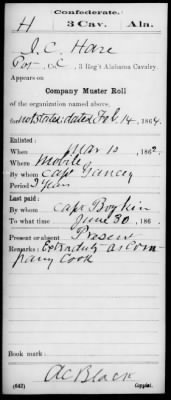 Confederate.
H 3 Cav. Ala.
J. C. Hare
Pvt., Co. C, 3 Reg't Alabama Cavalry.
Appears on
Company Muster Roll
of the organization named above,
for not stated, dated Feb. 14, 1864.
Enlisted:
When Mar 10, 1862.
Where Mobile
By whom Capt Yancey
Period 3 Years
Last paid:
By whom Capt Boykin
To what time June 30, 186
Present or absent Present
Remarks: Extra duty as Com-
pany Cook
Book mark:
(642) A C Black
Copyist.